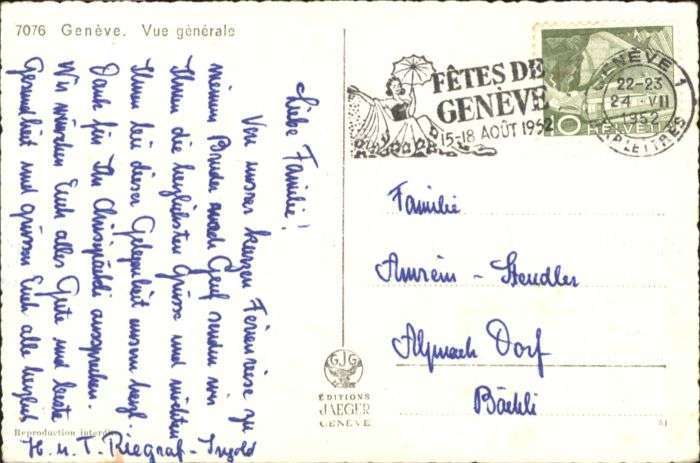 7076 Genève. Vue générale
Liebe Familie!
Von unsrer kurzen Ferienreise zu
meinem Bruder nach Genf senden wir
Ihnen die herzlichsten Grüsse und möchten
Ihnen bei dieser Gelegenheit unsern herzl.
Dank für Ihr aussprechen.
Wir wünschen Euch alles Gute und beste
Gesundheit und grüssen Euch alle herzlich
H. u. T. Riegraf-
Reproduction interdite
FÊTES DE
GENÈVE
15-18 AOÛT 1952
GENÈVE 1
22-23
24. VII
1952
EXP. LETTRES
10 HELVETIA
Familie
Amrein - Stendler
Alpnach Dorf
Bächli
GJG
ÉDITIONS
JAEGER
GENÈVE